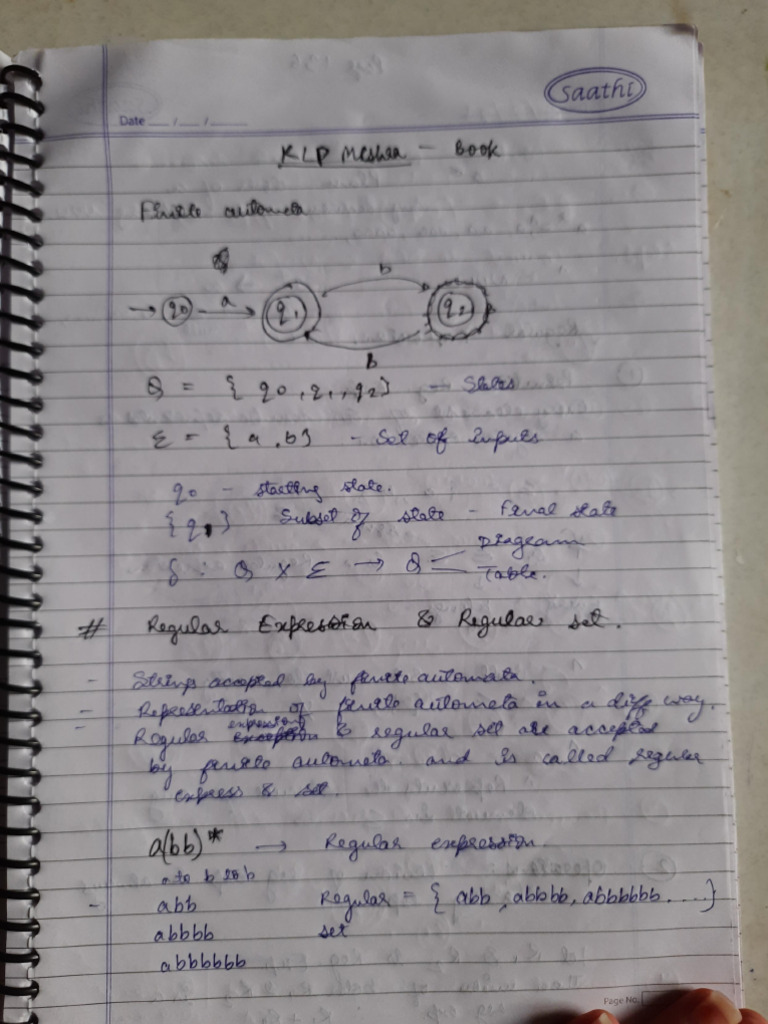 saathi
Date __/__/__
KLP Meshra - Book
Finite automata
→ q0 a q1 b q2
b
Q = { q0, q1, q2} → States
Σ = { a, b} - Set of Inputs
q0 - starting state.
{q1} Subset of state - Final state
δ : Q X Σ → Q Diagram
Table.
# Regular Expression & Regular set.
- Strings accepted by finite automata.
- Representation of finite automata in a diff way.
expression
- Regular & regular set are accepted
by finite automata. and is called regular
express & set.
a(bb)* → Regular expression.
- abb Regular = { abb, abbbb, abbbbbb ....}
abbbb set
abbbbbb
Page No.